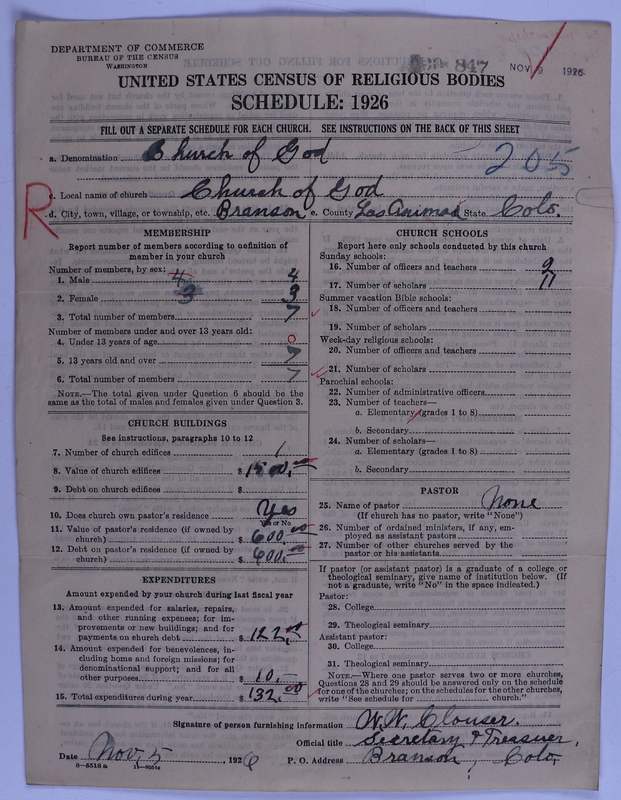 DEPARTMENT OF COMMERCE
BUREAU OF THE CENSUS
WASHINGTON
847
NOV 9 1926
UNITED STATES CENSUS OF RELIGIOUS BODIES
SCHEDULE: 1926
FILL OUT A SEPARATE SCHEDULE FOR EACH CHURCH. SEE INSTRUCTIONS ON THE BACK OF THIS SHEET
a. Denomination Church of God
205
R
c. Local name of church Church of God
d. City, town, village, or township, etc. Branson e. County Las Animas State Colo.
MEMBERSHIP
Report number of members according to definition of
member in your church
Number of members, by sex:
1. Male 4 4
2. Female 3 3
3. Total number of members 7
Number of members under and over 13 years old:
4. Under 13 years of age 0
5. 13 years old and over 7
6. Total number of members 7
NOTE.—The total given under Question 6 should be
same as the total of males and females given under Question 3.
CHURCH BUILDINGS
See instructions, paragraphs 10 to 12
7. Number of church edifices 1
8. Value of church edifices $ 1500.00
9. Debt on church edifices $
10. Does church own pastor's residence Yes
Yes or No
11. Value of pastor's residence (if owned by
church) $ 600.00
12. Debt on pastor's residence (if owned by
church) $ 400.00
EXPENDITURES
Amount expended by your church during last fiscal year
13. Amount expended for salaries, repairs,
and other running expenses; for im-
provements or new buildings; and for
payments on church debt $ 122.00
14. Amount expended for benevolences, in-
cluding home and foreign missions; for
denominational support; and for all
other purposes $ 10.—
15. Total expenditures during year $ 132.00
CHURCH SCHOOLS
Report here only schools conducted by this church
Sunday schools:
16. Number of officers and teachers 9
17. Number of scholars 11
Summer vacation Bible schools:
18. Number of officers and teachers
19. Number of scholars
Week-day religious schools:
20. Number of officers and teachers
21. Number of scholars
Parochial schools:
22. Number of administrative officers
23. Number of teachers—
a. Elementary (grades 1 to 8)
b. Secondary
24. Number of scholars—
a. Elementary (grades 1 to 8)
b. Secondary
PASTOR
25. Name of pastor None
(If church has no pastor, write "None")
26. Number of ordained ministers, if any, em-
ployed as assistant pastors
27. Number of other churches served by the
pastor or his assistants
If pastor (or assistant pastor) is a graduate of a college or
theological seminary, give name of institution below. (If
not a graduate, write "No" in the space indicated.)
Pastor:
28. College
29. Theological seminary
Assistant pastor:
30. College
31. Theological seminary
NOTE.—Where one pastor serves two or more churches,
Questions 28 and 29 should be answered only on the schedule
for one of the churches; on the schedules for the other churches,
write "See schedule for church."
Signature of person furnishing information W. W. Clouser.
Official title Secretary & Treasurer,
Date Nov, 5, 1926 P. O. Address Branson, Colo,
8—5518 a